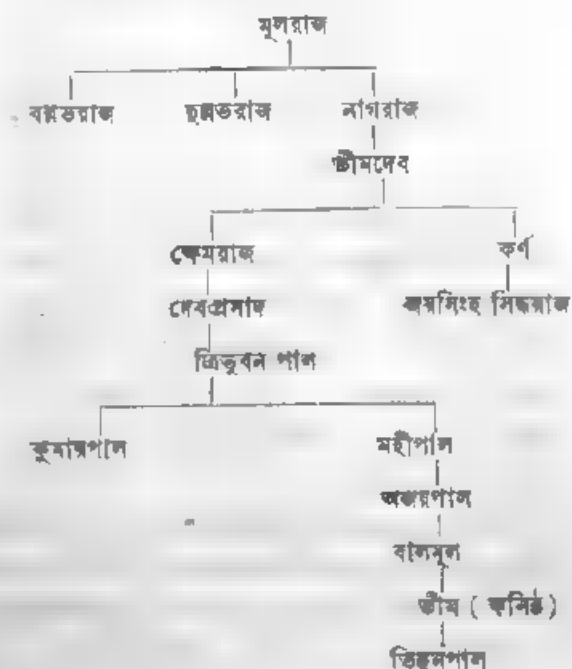 মূলরাজ
বল্লভরাজ দুল্লভরাজ নাগরাজ
ভীমদেব
ক্ষেমরাজ কর্ণ
দেবপ্রসাদ জয়সিংহ সিদ্ধরাজ
ত্রিভুবন পাল
কুমারপাল মহীপাল
অজয়পাল
বালমূল
ভীম ( কনিষ্ঠ )
তিহুনপাল